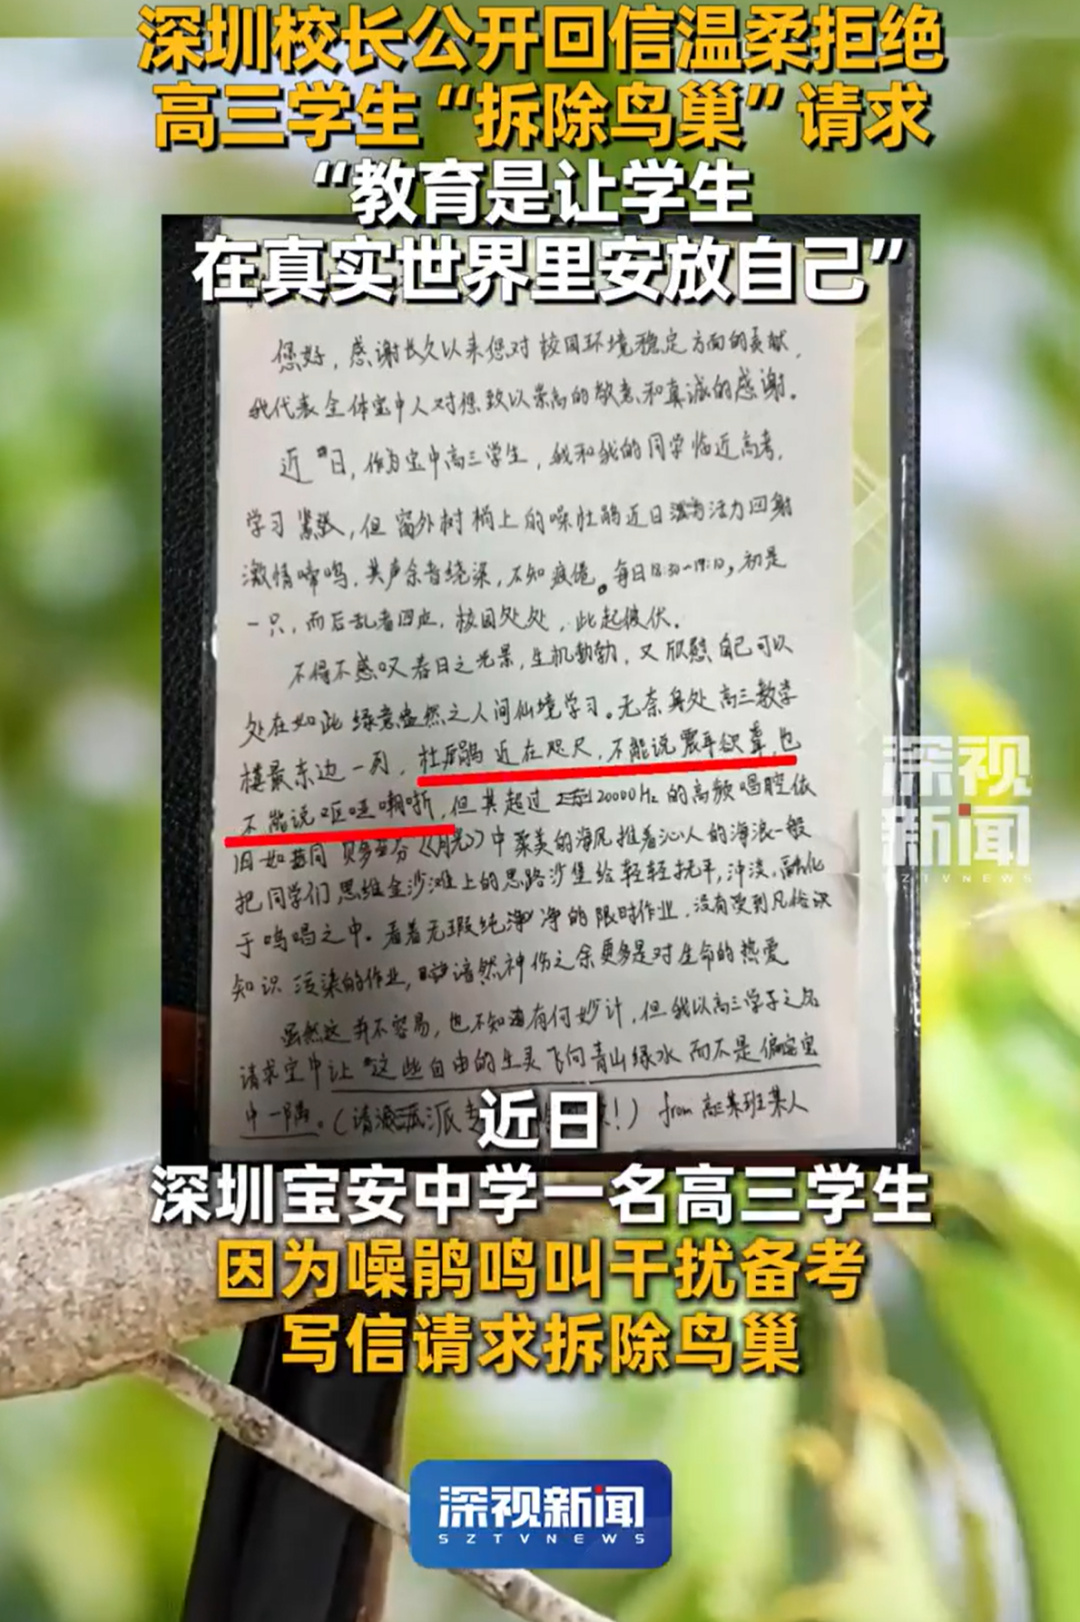 深圳校长公开回信温柔拒绝
高三学生“拆除鸟巢”请求
“教育是让学生
在真实世界里安放自己”
您好，感谢长久以来您对校园环境稳定方面的贡献，
我代表全体宝中人对您致以崇高的敬意和真诚的感谢。
近日，作为宝中高三学生，我和我的同学临近高考，
学习紧张，但窗外树梢上的噪杜鹃近日活力四射
激情啼鸣，其声余音绕梁，不知疲倦。每日18:30-19:10，初是
一只，而后乱者四应，校园处处，此起彼伏。
不得不感叹春日之光景，生机勃勃，又欣慰自己可以
处在如此绿意盎然之人间仙境学习。无奈身处高三教学
楼最东边一列，杜鹃近在咫尺，不能说震耳欲聋，也
不能说呕哑嘲哳，但其超过20000Hz的高频唱腔依
旧如同贝多芬《月光》中柔美的海风推着沁人的海浪一般
把同学们思维金沙滩上的思路沙堡给轻轻抚平，冲淡，融化
于鸣唱之中。看着无瑕纯净的限时作业，没有受到凡俗
知识污染的作业，黯然神伤之余更多是对生命的热爱
虽然这并不容易，也不知有何妙计，但我以高三学子之名
请求宝中让这些自由的生灵飞向青山绿水而不是偏安宝
中一隅。（请派！）from 高三某班某人
近日
深圳宝安中学一名高三学生
因为噪鹃鸣叫干扰备考
写信请求拆除鸟巢
深视
新闻
SZTVNEWS
深视新闻
SZTVNEWS